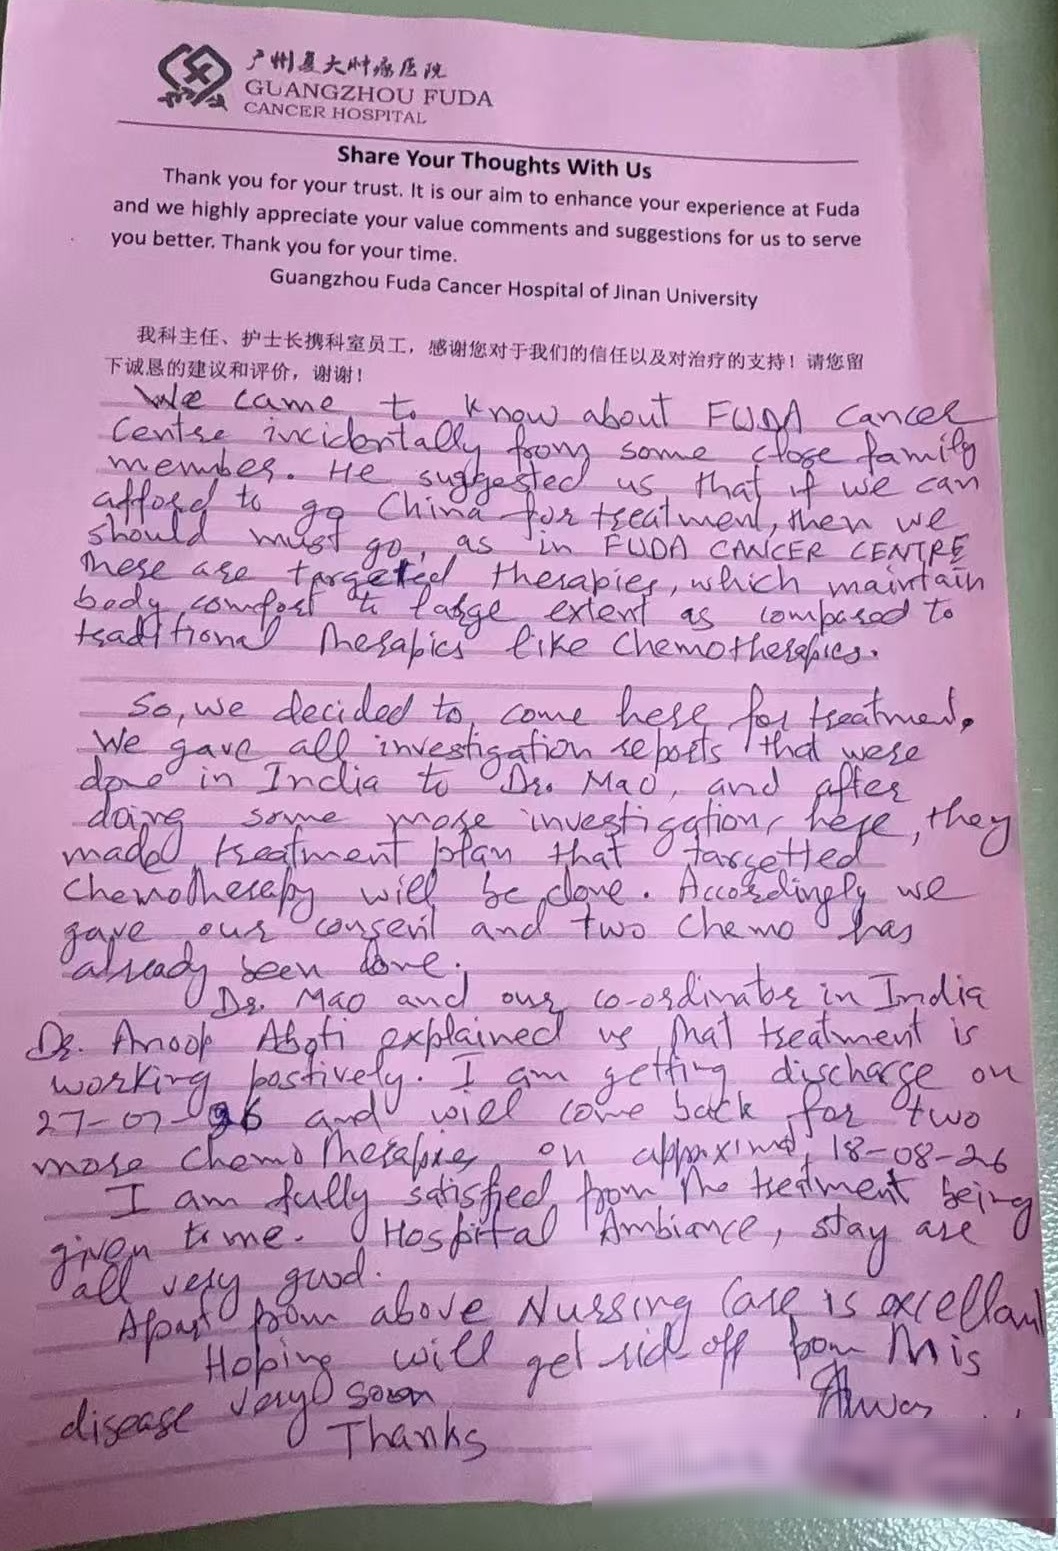 广州复大肿瘤医院
GUANGZHOU FUDA
CANCER HOSPITAL
Share Your Thoughts With Us
Thank you for your trust. It is our aim to enhance your experience at Fuda
and we highly appreciate your value comments and suggestions for us to serve
you better. Thank you for your time.
Guangzhou Fuda Cancer Hospital of Jinan University
我科主任、护士长携科室员工，感谢您对于我们的信任以及对治疗的支持！请您留
下诚恳的建议和评价，谢谢！
We came to know about FUDA Cancer
Centre incidentally from some close family
member. He suggested us that if we can
afford to go China for treatment, then we
should must go, as in FUDA CANCER CENTRE
these are targeted therapies, which maintain
body comfort to large extent as compared to
traditional therapies like chemotherapies.
So, we decided to come here for treatment.
We gave all investigation reports that were
done in India to Dr. Mao, and after
doing some more investigations here, they
made treatment plan that targetted
chemotherapy will be done. Accordingly we
gave our consent and two chemo has
already been done.
Dr. Mao and our co-ordinator in India
Dr. Anoop Aboti explained us that treatment is
working postively. I am getting discharge on
27-07-26 and will come back for two
more chemotherapies on approximat 18-08-26
I am fully satisfied from the treatment being
given to me. Hospital Ambiance, stay are
all very good.
Apart from above Nurssing Care is excellant
Hoping will get rid off from this
disease very soon
Thanks